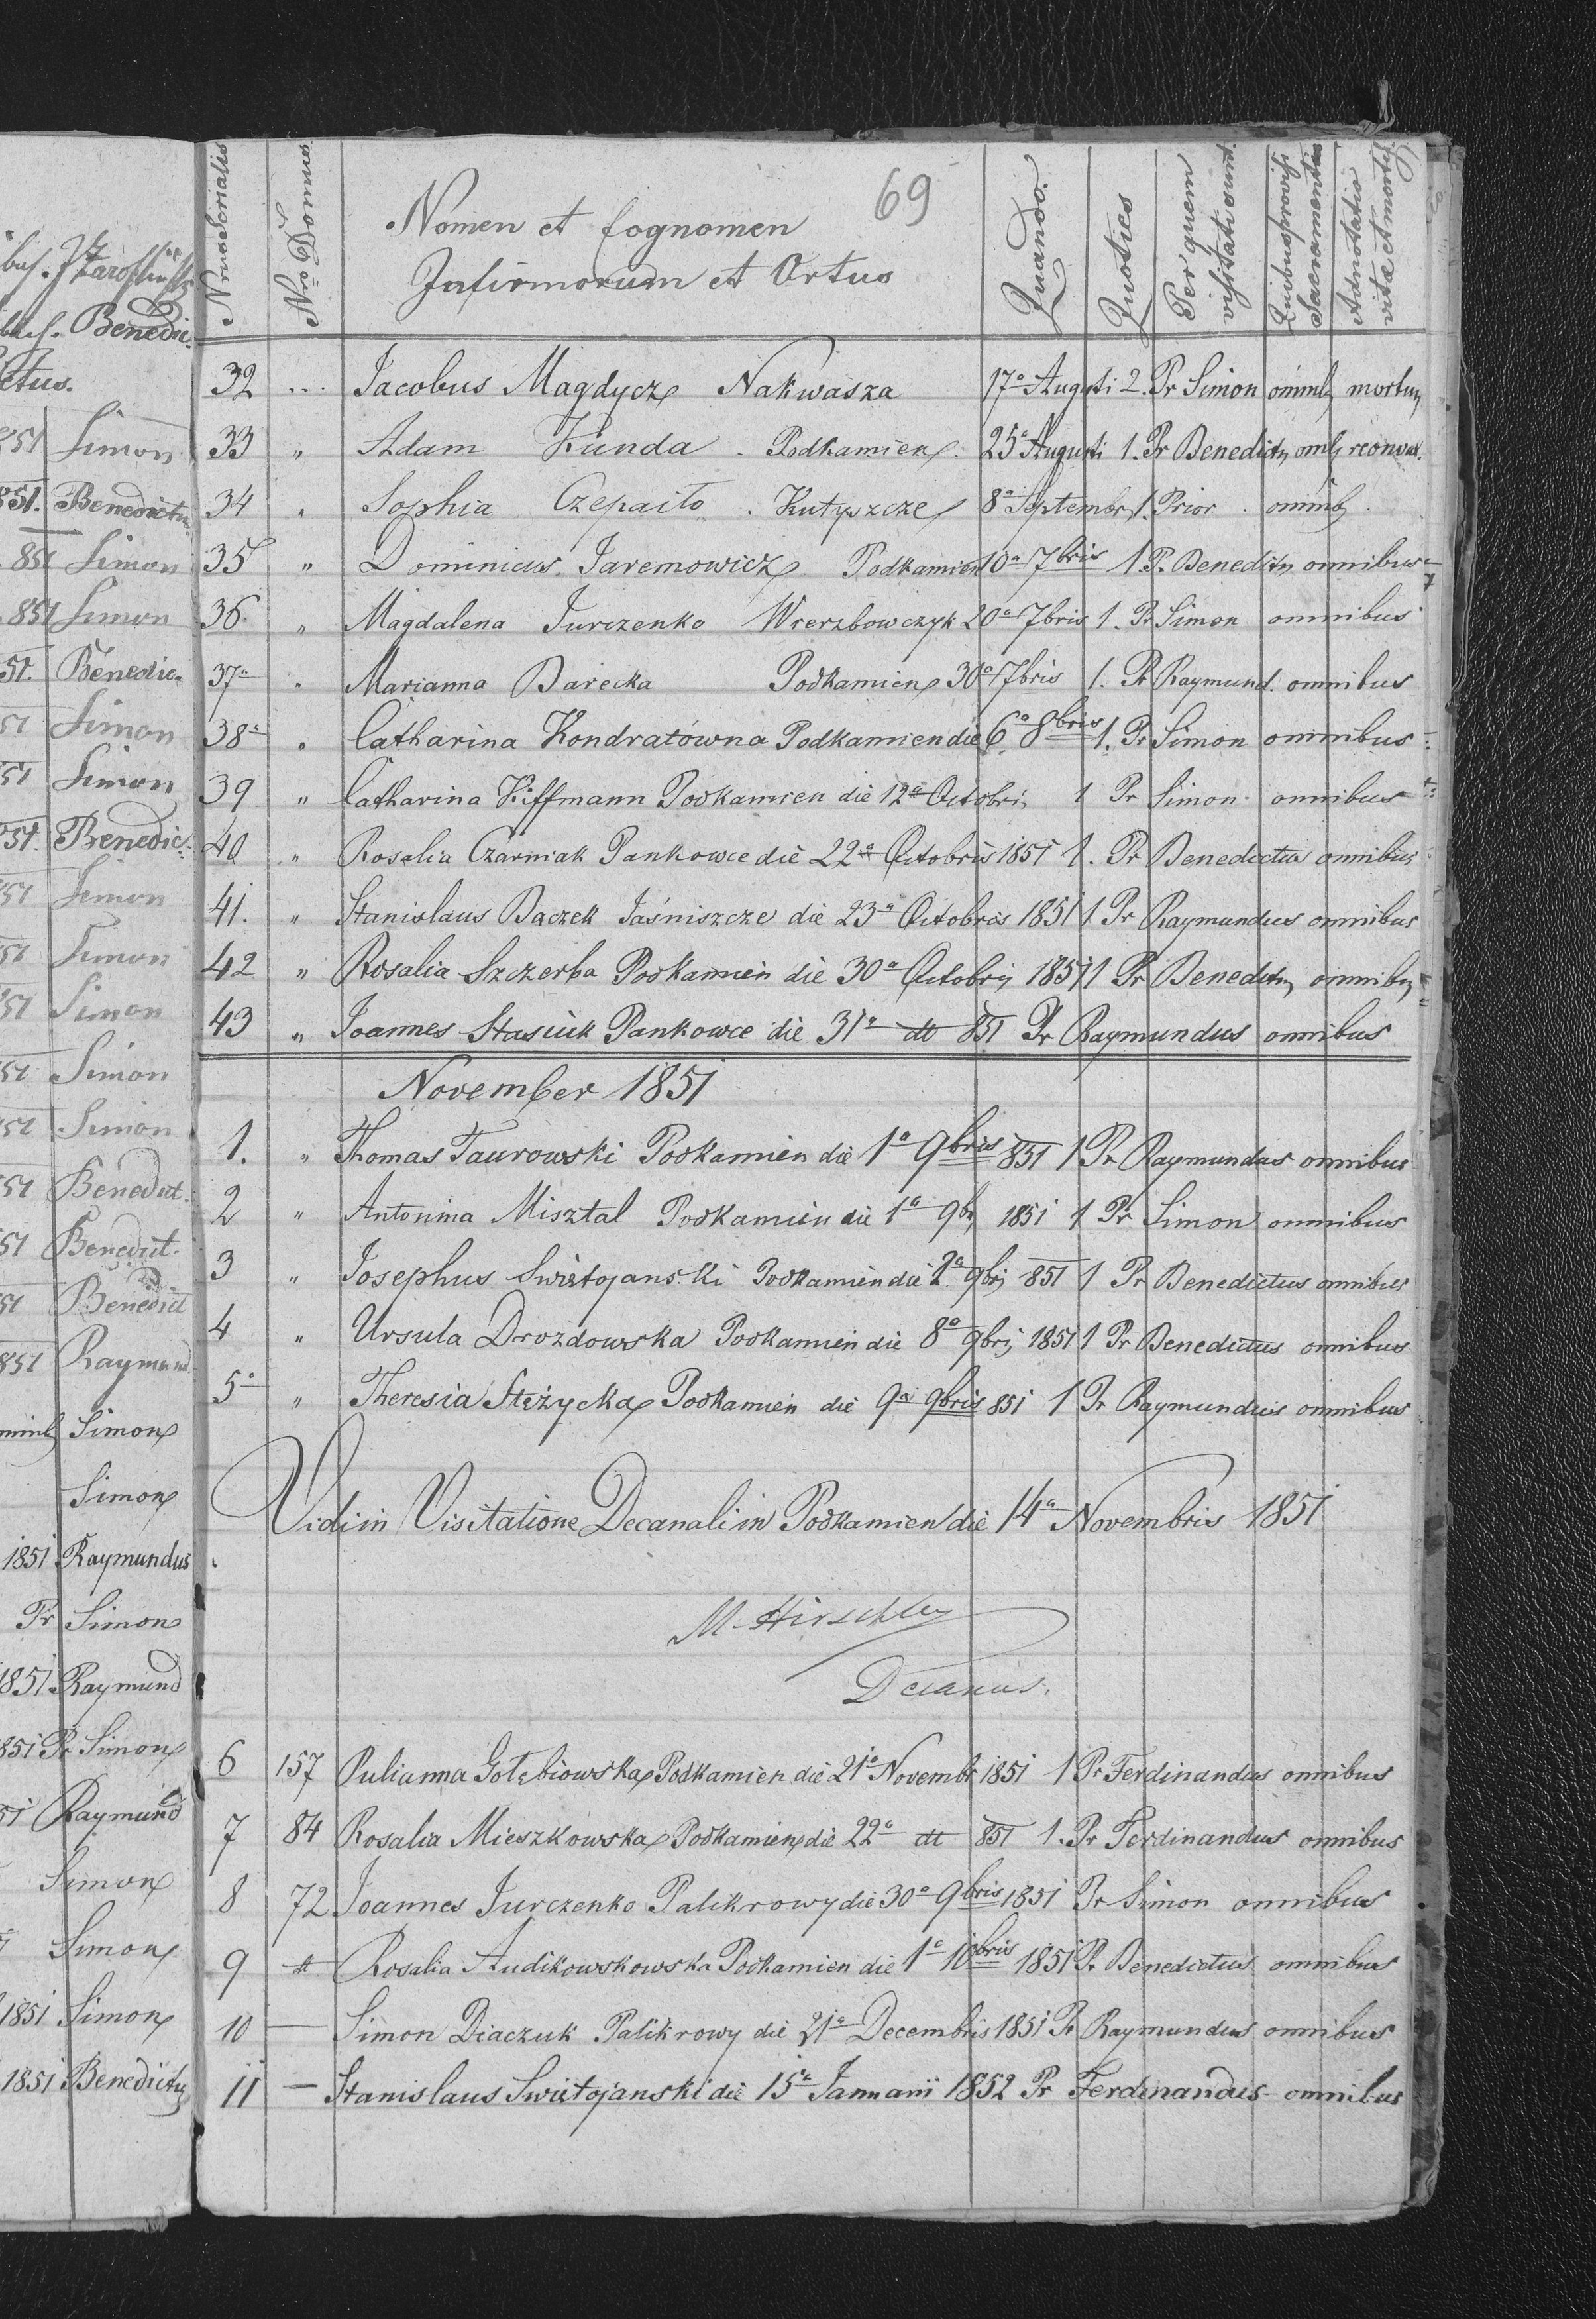 69
Nrus Serialis
Nro Domus
Nomen et Cognomen
Infirmorum et Ortus
Quando.
Quoties
Per quem
visitati sunt
Quibus provisi
Sacramentis
Adnotatio
vitæ et mortis
32 ... Jacobus Magdycz Nakwasza 17a Augusti 2. Pr Simon omnib mortuus
33 " Adam Kunda . Podkamien . 25a Augusti 1. Pr Benedictus omb reconval.
34 " Sophia Czepaito . Kutyszcze 8a Septembr 1. Prior . omnib .
35 " Dominicus Jaremowicz Podkamien 10a 7bris 1 P. Benedictus omnibus
36. " Magdalena Jurczenko Wierzbowczyk 20a 7bris 1. Pr Simon omnibus
37a " Marianna Barecka Podkamien 30a 7bris 1. Pr Raymund. omnibus
38a " Catharina Kondratówna Podkamien die 6a 8bris 1. Pr Simon omnibus
39 " Catharina Kiffmann Podkamien die 12a Octobris 1 Pr Simon omnibus
40 " Rosalia Czarniak Pankowce die 22a Octobris 1851 1. Pr Benedictus omnibus
41. " Stanislaus Bączek Jaśniszcze die 23a Octobris 1851 1 Pr Raymundus omnibus
42 " Rosalia Szczerba Podkamien die 30a Octobris 1851 1 Pr Benedictus omnibus
43 " Joannes Stasiuk Pankowce die 31a dt 851 Pr Raymundus omnibus
November 1851
1. " Thomas Taurowski Podkamien die 1a 9bris 851 1 Pr Raymundus omnibus
2 " Antonina Misztal Podkamien die 1a 9bris 1851 1 Pr Simon omnibus
3 " Josephus Swiętojanski Podkamien die 2a 9bris 851 1 Pr Benedictus omnibus
4 " Ursula Drozdowska Podkamien die 8a 9bris 1851 1 Pr Benedictus omnibus
5a " Theresia Stężycka Podkamien die 9a 9bris 851 1 Pr Raymundus omnibus
Vidi in Visitatione Decanali in Podkamien die 14a Novembris 1851
M. Hirschler
Decanus.
6 157 Julianna Gołębiowska Podkamien die 21a Novembr 1851 1 Pr Ferdinandus omnibus
7 84 Rosalia Mieszkowska Podkamien die 22a dt 851 1. Pr Ferdinandus omnibus
8 72 Joannes Jurczenko Palikrowy die 30a 9bris 1851 Pr Simon omnibus
9 dt Rosalia Audikowskowska Podkamien die 1a 10bris 1851 Pr Benedictus omnibus
10 — Simon Diaczuk Palikrowy die 21a Decembris 1851 Pr Raymundus omnibus
11 — Stanislaus Swiętojanski die 15a Januarii 1852 Pr Ferdinandus omnibus
Benedic-
ctus.
851 Simon
851. Benedictus
851 Simon
851 Simon
51. Benedic-
51 Simon
51 Simon
51. Benedic-
51 Simon
51 Simon
51 Simon
51 Simon
51 Simon
51 Benedict.
51 Benedict.
51 Benedict
851 Raymund
Simon
Simon
1851 Raymundus
Pr Simon
1851 Raymund
851 Pr Simon
51 Raymund
Simon
Simon
1851 Simon
1851 Benedictus